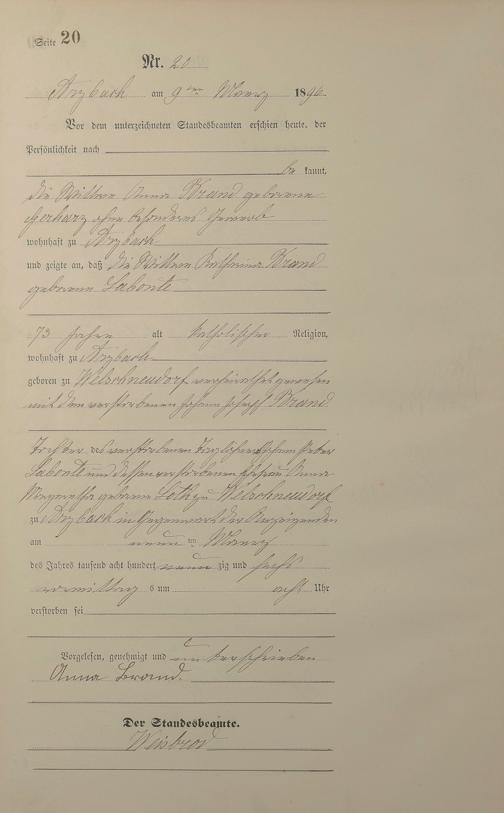 Seite 20
Nr. 20
Arzbach am 9ten Maerz 1896
Vor dem unterzeichneten Standesbeamten erschien heute, der
Persönlichkeit nach
be kannt,
die Wittwe Anna Brand geborene
Gerharz ohne besonderes Gewerb
wohnhaft zu Arzbach
und zeigte an, daß die Wittwe Katharina Brand
geborene Labonte
73 Jahre alt katholischer Religion,
wohnhaft zu Arzbach
geboren zu Welschneudorf verheirathet gewesen
mit dem verstorbenen Johann Joseph Brand
Tochter des verstorbenen Taglöhners Johann Peter
Labonte und dessen verstorbenen Ehefrau Anna
geborene Loth zu Welschneudorf
zu Arzbach in Gegenwart der Anzeigenden
am neunten Maerz
des Jahres tausend acht hundert neun zig und sechs
vormittag s um acht Uhr
verstorben sei
Vorgelesen, genehmigt und unterschrieben
Anna Brand.
Der Standesbeamte.
Weisbrod